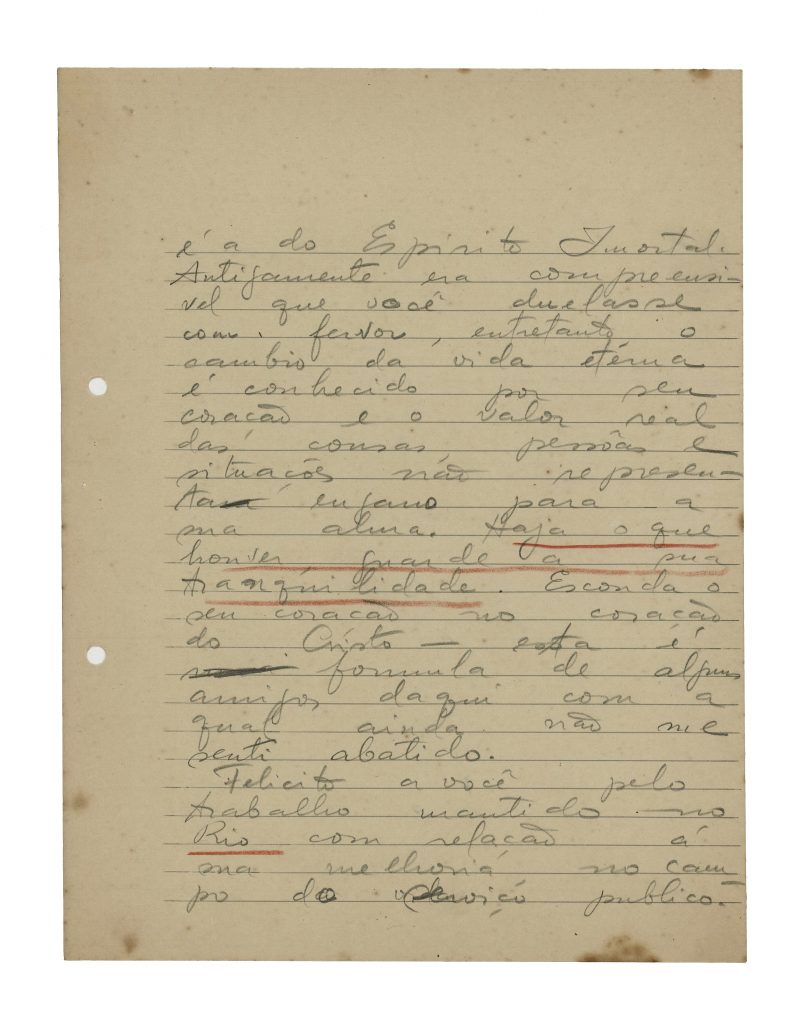 é a do Espirito Imortal.
Antigamente era compreensi-
vel que você duelasse
com fervor, entretanto o
cambio da vida etérna
é conhecido por seu
coração e o valor real
das cousas, pessôas e
situações não represen-
tará engano para a
sua alma. Haja o que
houver guarde a sua
tranquilidade. Esconda o
seu coração no coração
do Cristo — esta é
formula de alguns
amigos daqui com a
qual ainda não me
senti abatido.
Felicito a você pelo
trabalho mantido no
Rio com relação á
sua melhoria no cam
po do serviço publico.